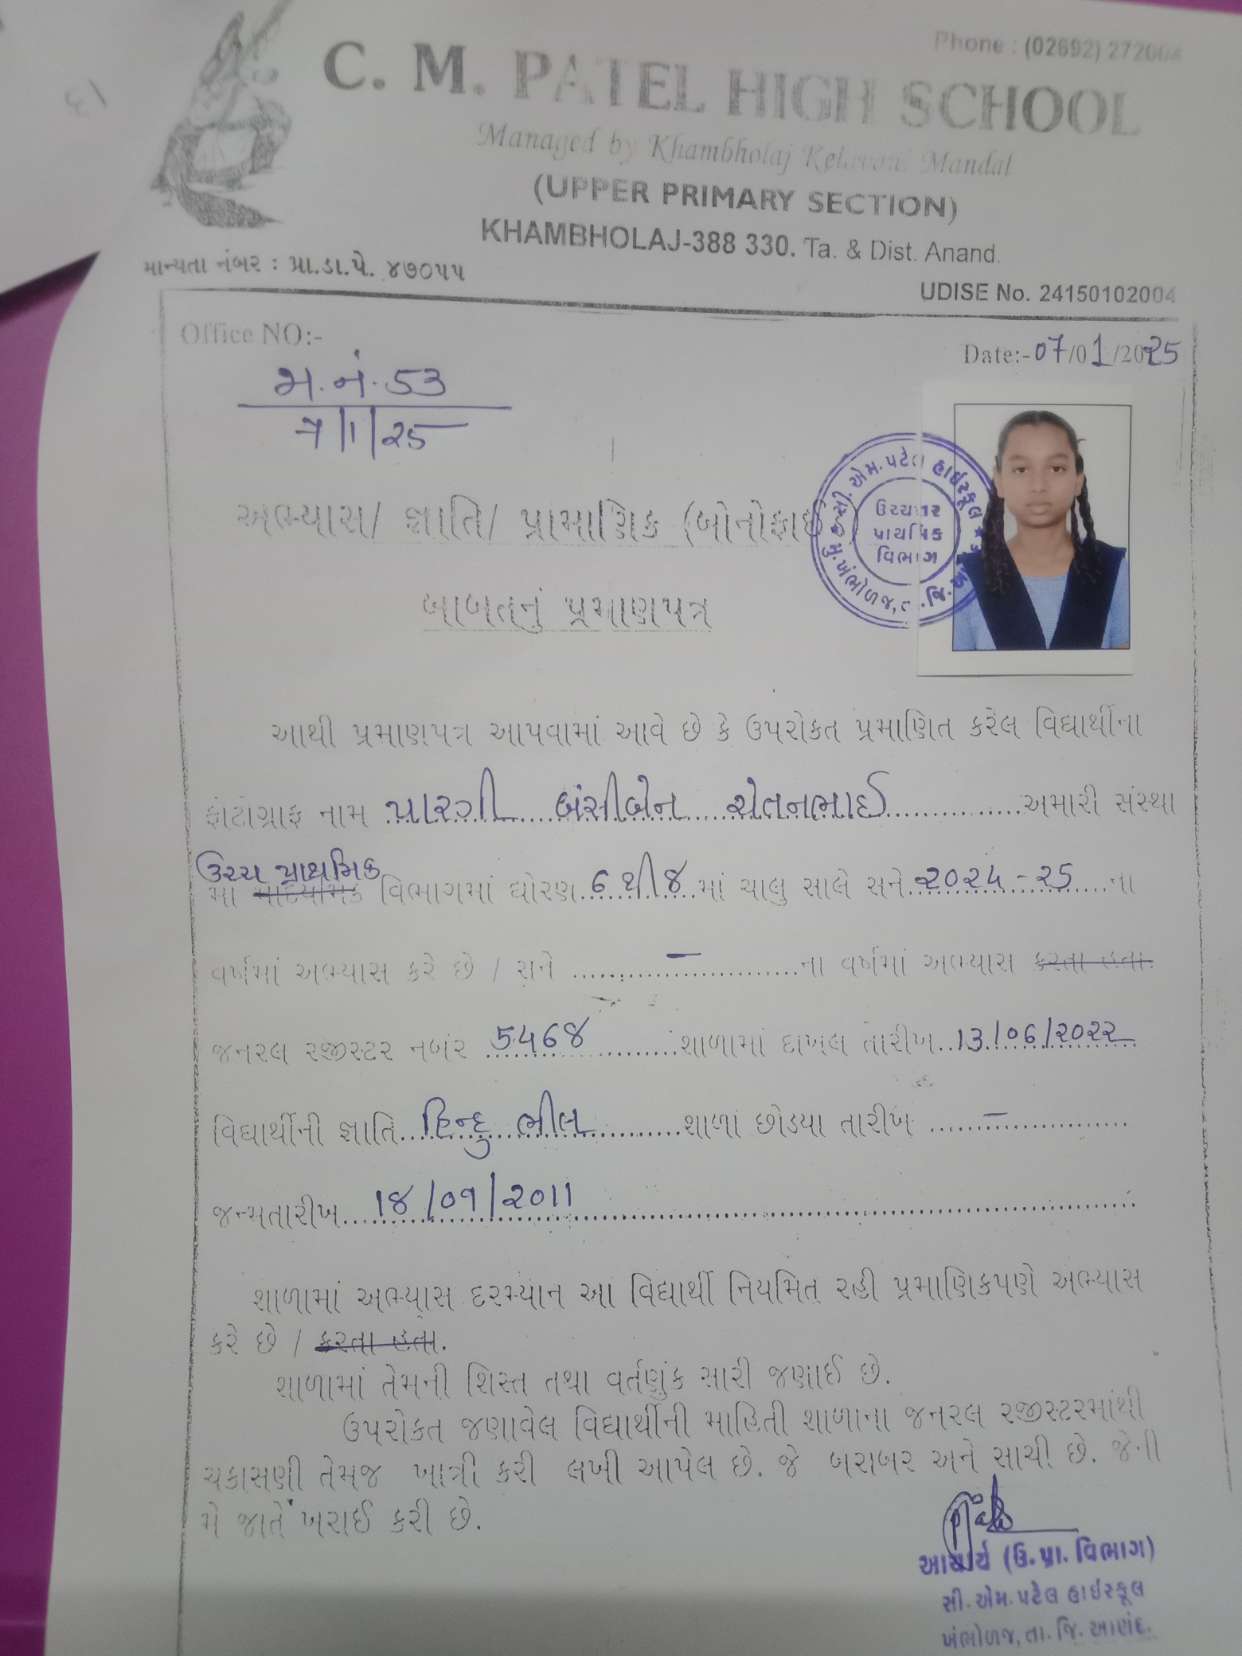 Phone : (02692) 272004
C. M. PATEL HIGH SCHOOL
Managed by Khambholaj Kelavani Mandal
(UPPER PRIMARY SECTION)
KHAMBHOLAJ-388 330. Ta. & Dist. Anand.
માન્યતા નંબર : પ્રા.ડા.પે. ૪૭૦૫૫
UDISE No. 24150102004
Office NO:-
Date:-07/01/2025
મ.નં. 53
7/1/25
અભ્યાસ/ જ્ઞાતિ/ પ્રામાણિક (બોનોફાઈ
બાબતનું પ્રમાણપત્ર
સી. એમ. પટેલ હાઈસ્કૂલ
ઉચ્ચતર
પ્રાથમિક
વિભાગ
મુ. ખંભોળજ, જિ.
આથી પ્રમાણપત્ર આપવામાં આવે છે કે ઉપરોક્ત પ્રમાણિત કરેલ વિદ્યાર્થીના
ફોટોગ્રાફ નામ પારગી બંસીબેન ચેતનભાઈ અમારી સંસ્થા
ઉચ્ચ પ્રાથમિક
મા માધ્યમિક વિભાગમાં ધોરણ 6 થી 8 માં ચાલુ સાલે સને 2024-25 ના
વર્ષમાં અભ્યાસ કરે છે / સને - ના વર્ષમાં અભ્યાસ કરતા હતા.
જનરલ રજીસ્ટર નબંર 5468 શાળામાં દાખલ તારીખ 13/06/2022
વિદ્યાર્થીની જ્ઞાતિ હિન્દુ ભીલ શાળાં છોડયા તારીખ -
જન્મતારીખ 18/09/2011
શાળામાં અભ્યાસ દરમ્યાન આ વિદ્યાર્થી નિયમિત રહી પ્રમાણિકપણે અભ્યાસ
કરે છે / કરતા હતા.
શાળામાં તેમની શિસ્ત તથા વર્તણુંક સારી જણાઈ છે.
ઉપરોક્ત જણાવેલ વિદ્યાર્થીની માહિતી શાળાના જનરલ રજીસ્ટરમાંથી
ચકાસણી તેમજ ખાત્રી કરી લખી આપેલ છે. જે બરાબર અને સાચી છે. જેની
મે જાતે ખરાઈ કરી છે.
આચાર્ય (ઉ.પ્રા. વિભાગ)
સી. એમ. પટેલ હાઈસ્કૂલ
ખંભોળજ, તા. જિ. આણંદ.